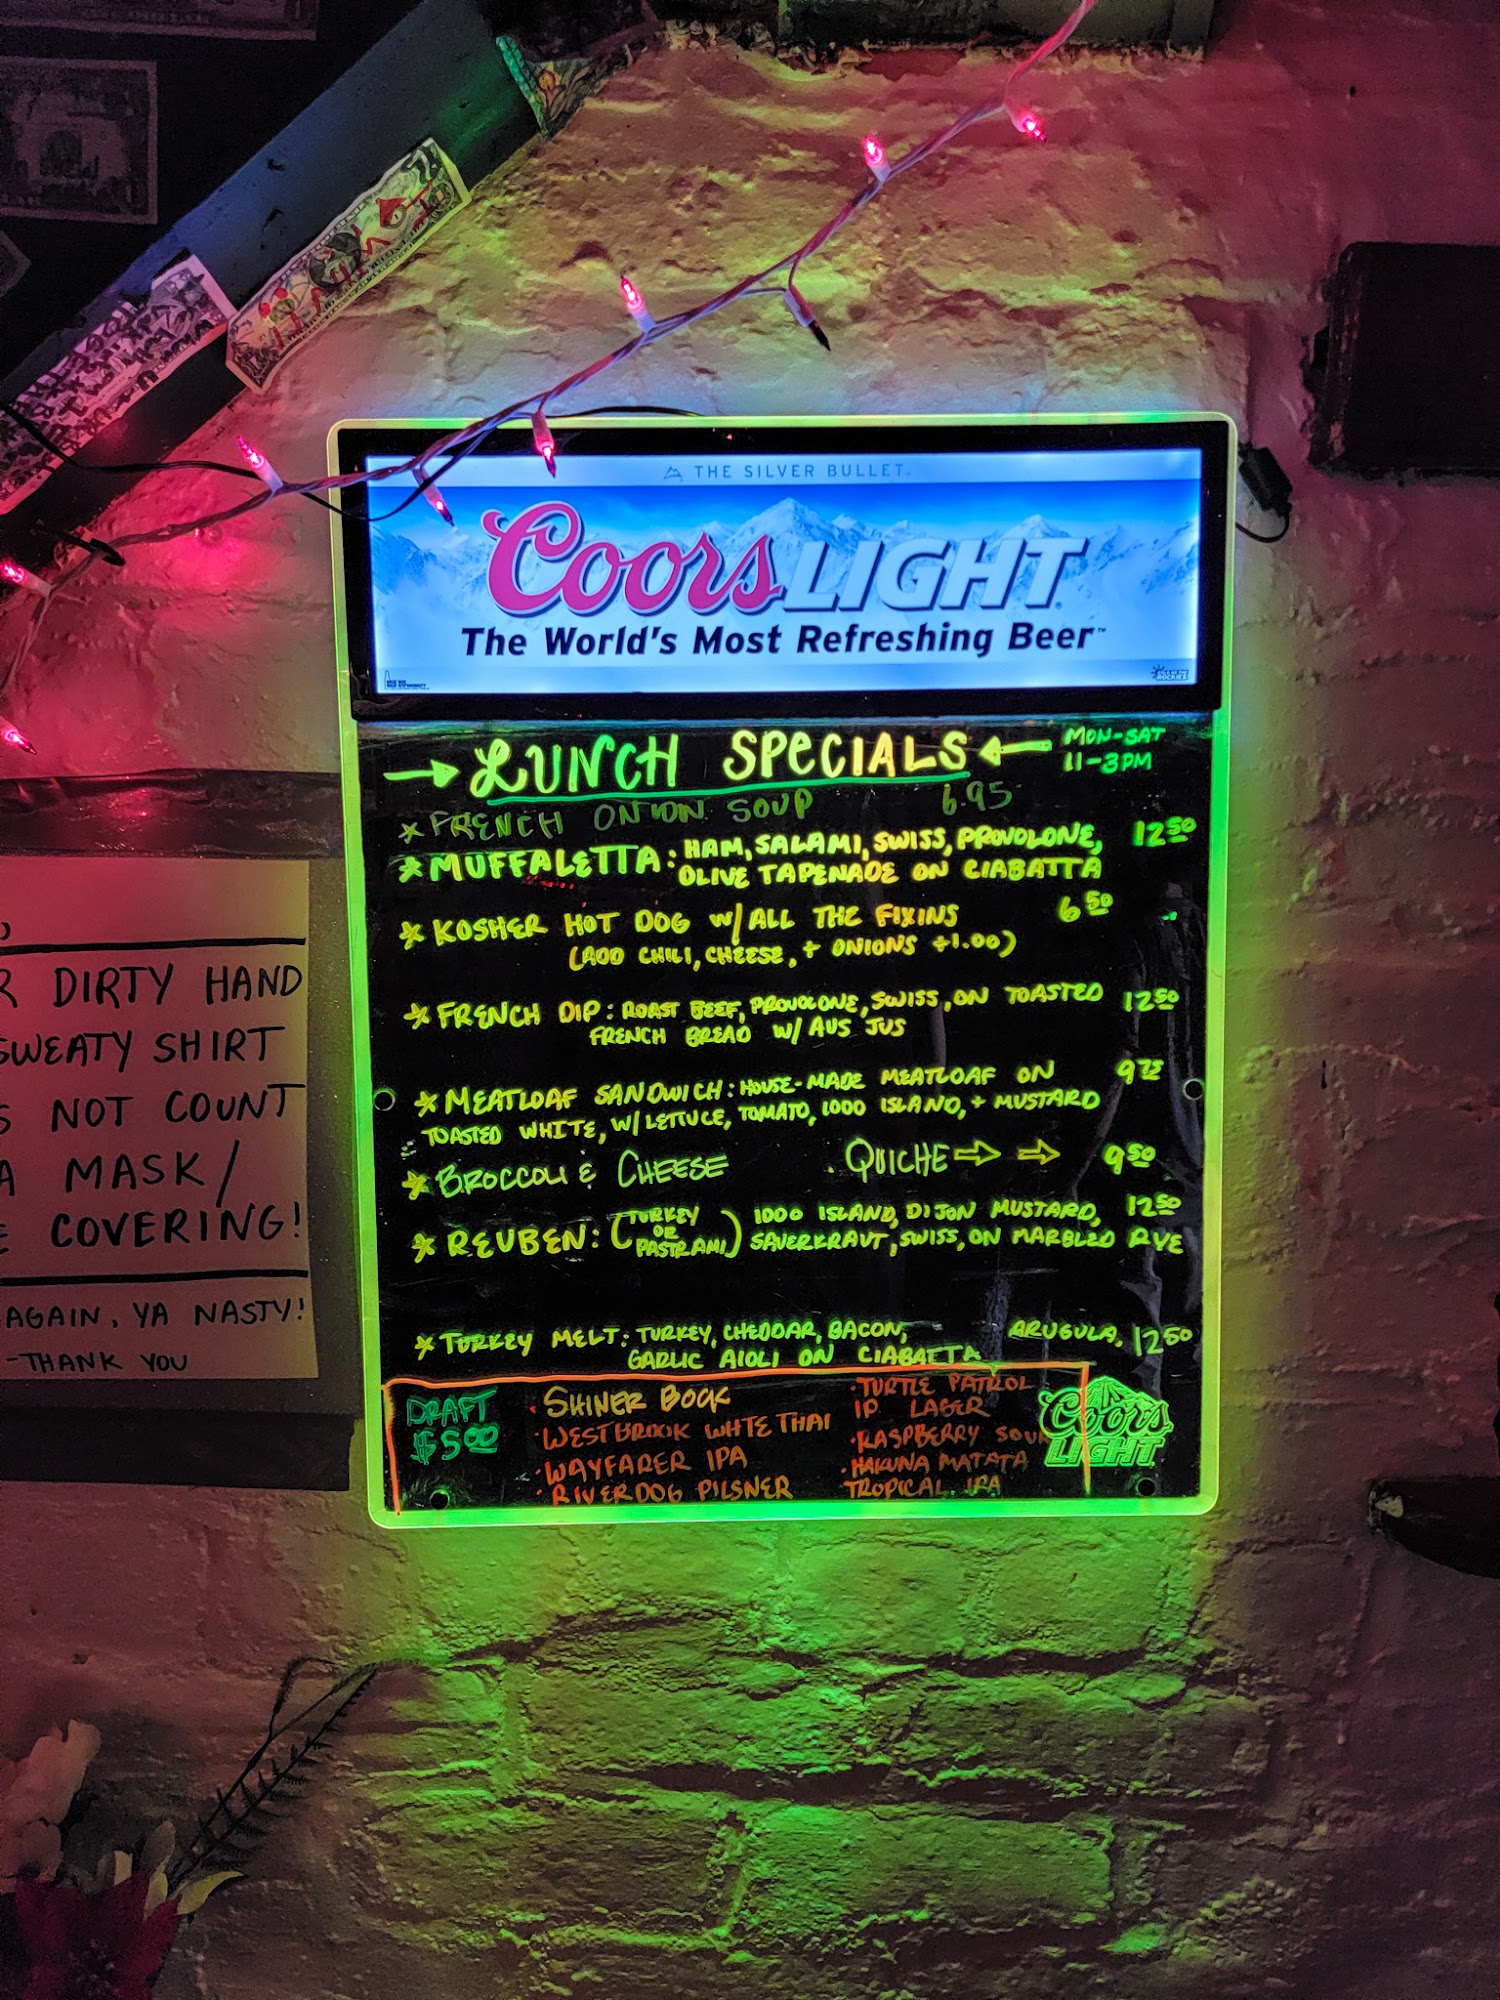 THE SILVER BULLET.
Coors LIGHT
The World's Most Refreshing Beer™
→ LUNCH SPECIALS ← MON-SAT
11-3PM
* FRENCH ONION SOUP 6.95
* MUFFALETTA: HAM, SALAMI, SWISS, PROVOLONE, 12 50
OLIVE TAPENADE ON CIABATTA
* KOSHER HOT DOG W/ ALL THE FIXINS 6 50
(ADD CHILI, CHEESE, + ONIONS +1.00)
* FRENCH DIP: ROAST BEEF, PROVOLONE, SWISS, ON TOASTED 12 50
FRENCH BREAD W/ AUS JUS
* MEATLOAF SANDWICH: HOUSE-MADE MEATLOAF ON 9
TOASTED WHITE, W/ LETTUCE, TOMATO, 1000 ISLAND, + MUSTARD
* BROCCOLI & CHEESE QUICHE ⇨ ⇨ 9 50
* REUBEN: (TURKEY OR PASTRAMI) 1000 ISLAND, DIJON MUSTARD, 12 50
SAUERKRAUT, SWISS, ON MARBLED RYE
* TURKEY MELT: TURKEY, CHEDDAR, BACON, ARUGULA, 12 50
GARLIC AIOLI ON CIABATTA
DRAFT
$5 00
· SHINER BOCK
· WESTBROOK WHITE THAI
· WAYFARER IPA
· RIVERDOG PILSNER
· TURTLE PATROL
IP LAGER
· RASPBERRY SOUR
· HAKUNA MATATA
TROPICAL IPA
Coors
LIGHT
R DIRTY HAND
SWEATY SHIRT
S NOT COUNT
A MASK/
E COVERING!
AGAIN, YA NASTY!
-THANK YOU